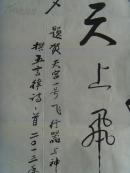 天上飛
题贺天宫一号飞行器上神
拱五言律诗一首二〇一二年